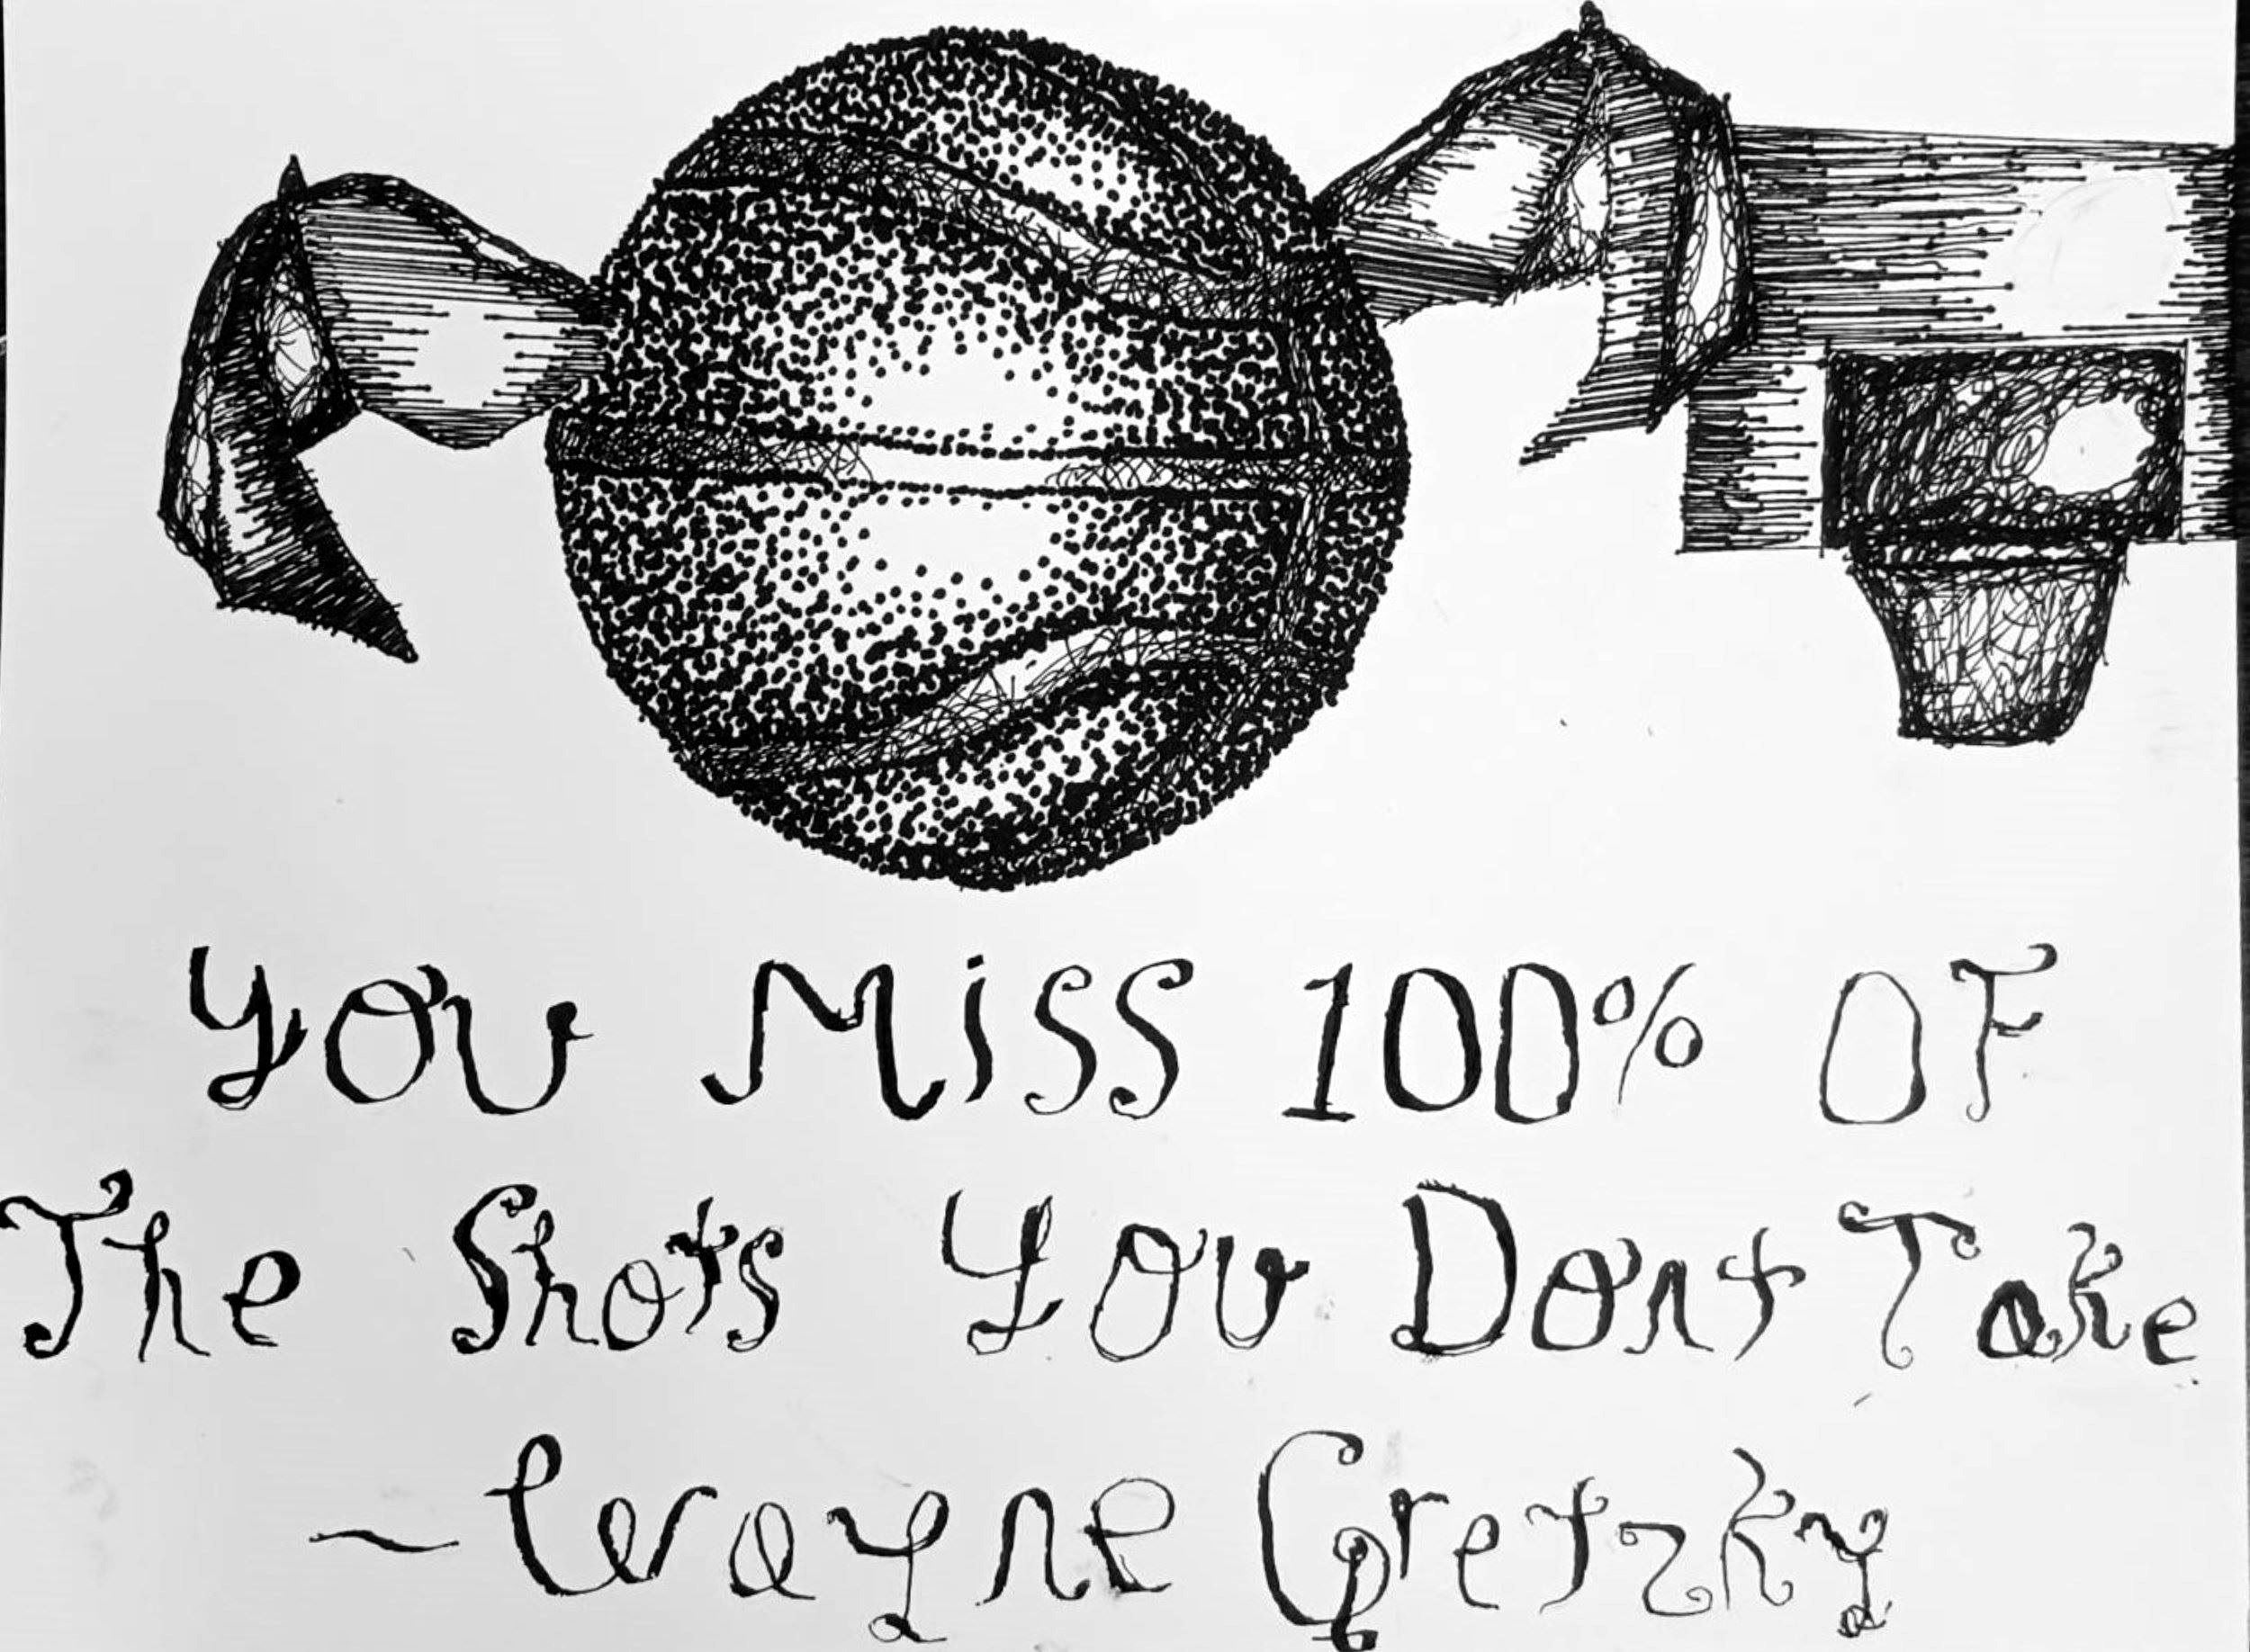 You Miss 100% OF
The Shots You Dont Take
~Wayne Gretzky